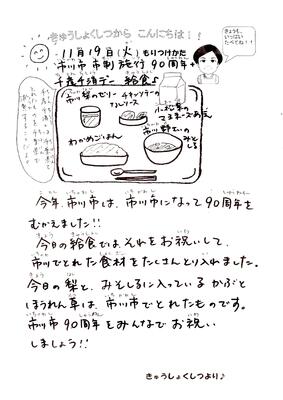 きゅうしょくしつから こんにちは!!
きょうも
いっぱい
たべてね!!
11月19日(火) もりつけかた
市川市 市制施行 90周年+
千産千消デー 給食♪
市川梨のゼリー
チキンソテーの
小松菜の
マヨネーズあえ
わかめごはん
市川野さいの
みそしる
今年、市川市は、市川市になって90周年を
むかえました!!
今日の給食では、それをお祝いして、
市川でとれた食材をたくさんとり入れました。
今日の梨と、みそしるに入っている かぶと
ほうれん草は、市川市でとれたものです。
市川市90周年をみんなでお祝い
しましょう!!
きゅうしょくしつより♪